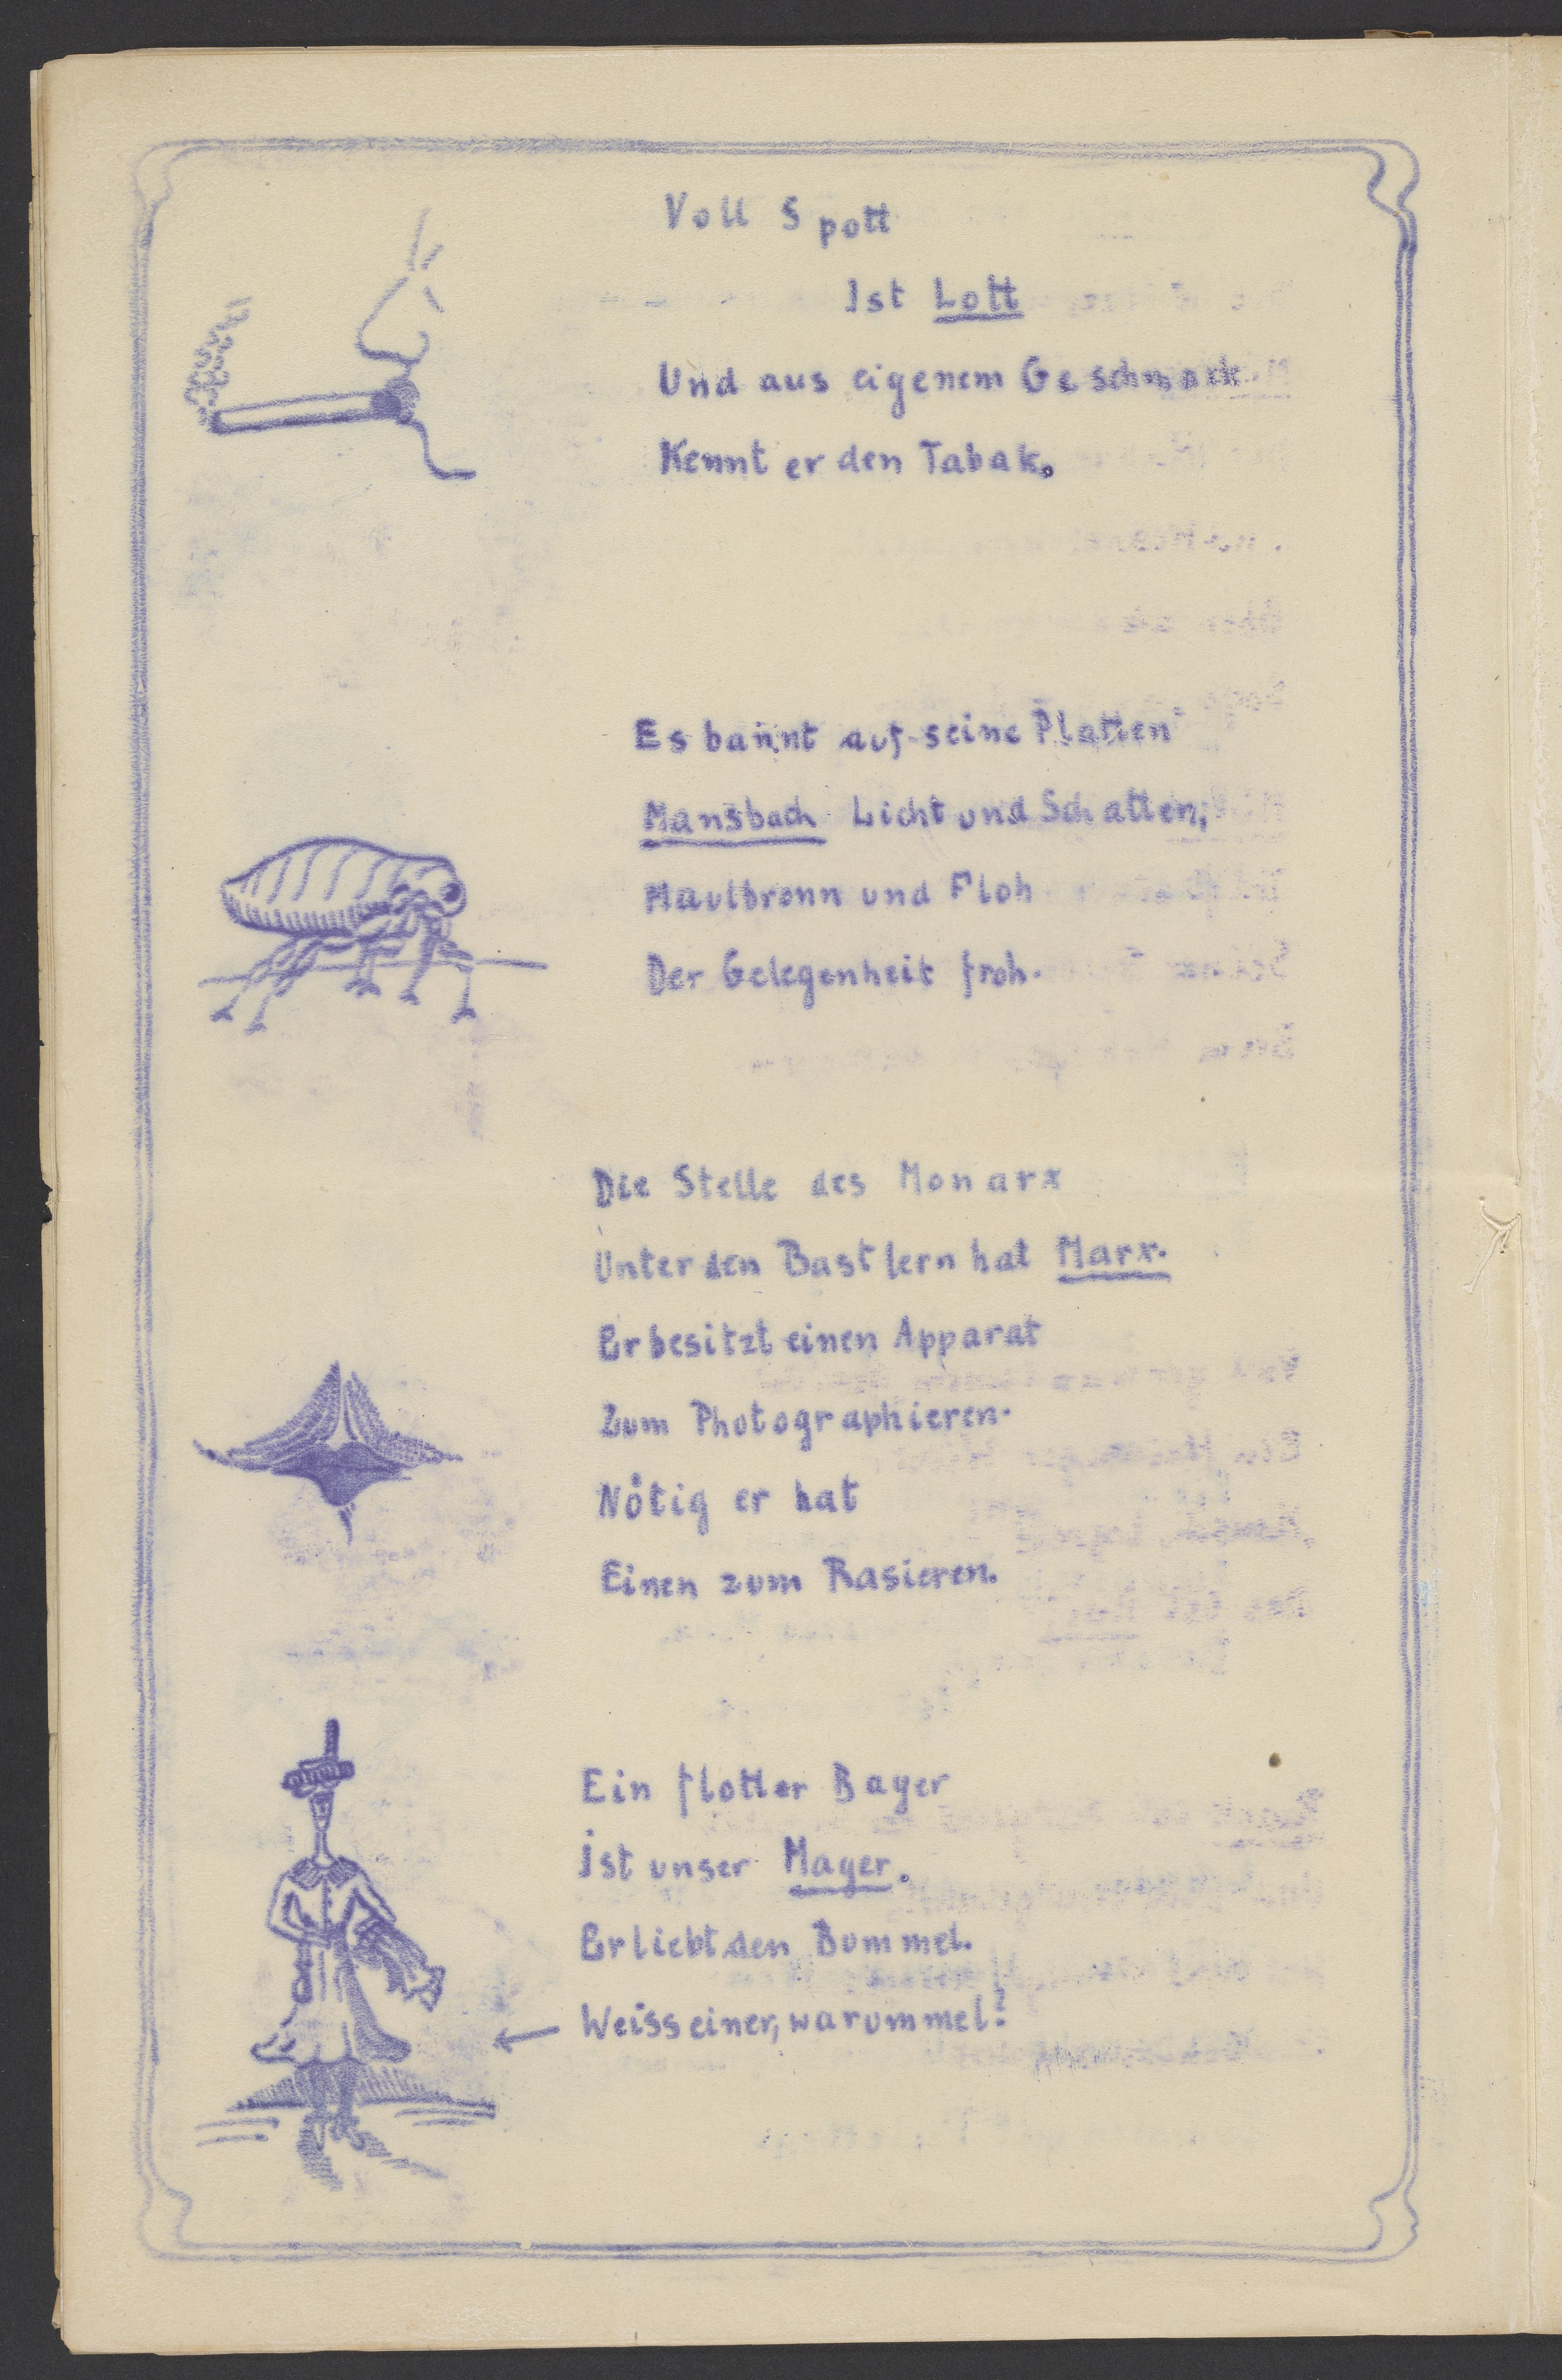 Voll Spott
Ist Lott
Und aus eigenem Geschmack
Kennt er den Tabak.
Es bannt auf seine Platten
Mansbach Licht und Schatten;
Maulbronn und Floh
Der Gelegenheit froh.
Die Stelle des Monarx
Unter den Bastlern hat Marx.
Er besitzt einen Apparat
Zum Photographieren.
Nötig er hat
Einen zum Rasieren.
Ein flotter Bayer
ist unser Mayer.
Er liebt den Bummel.
Weiss einer, warummel?